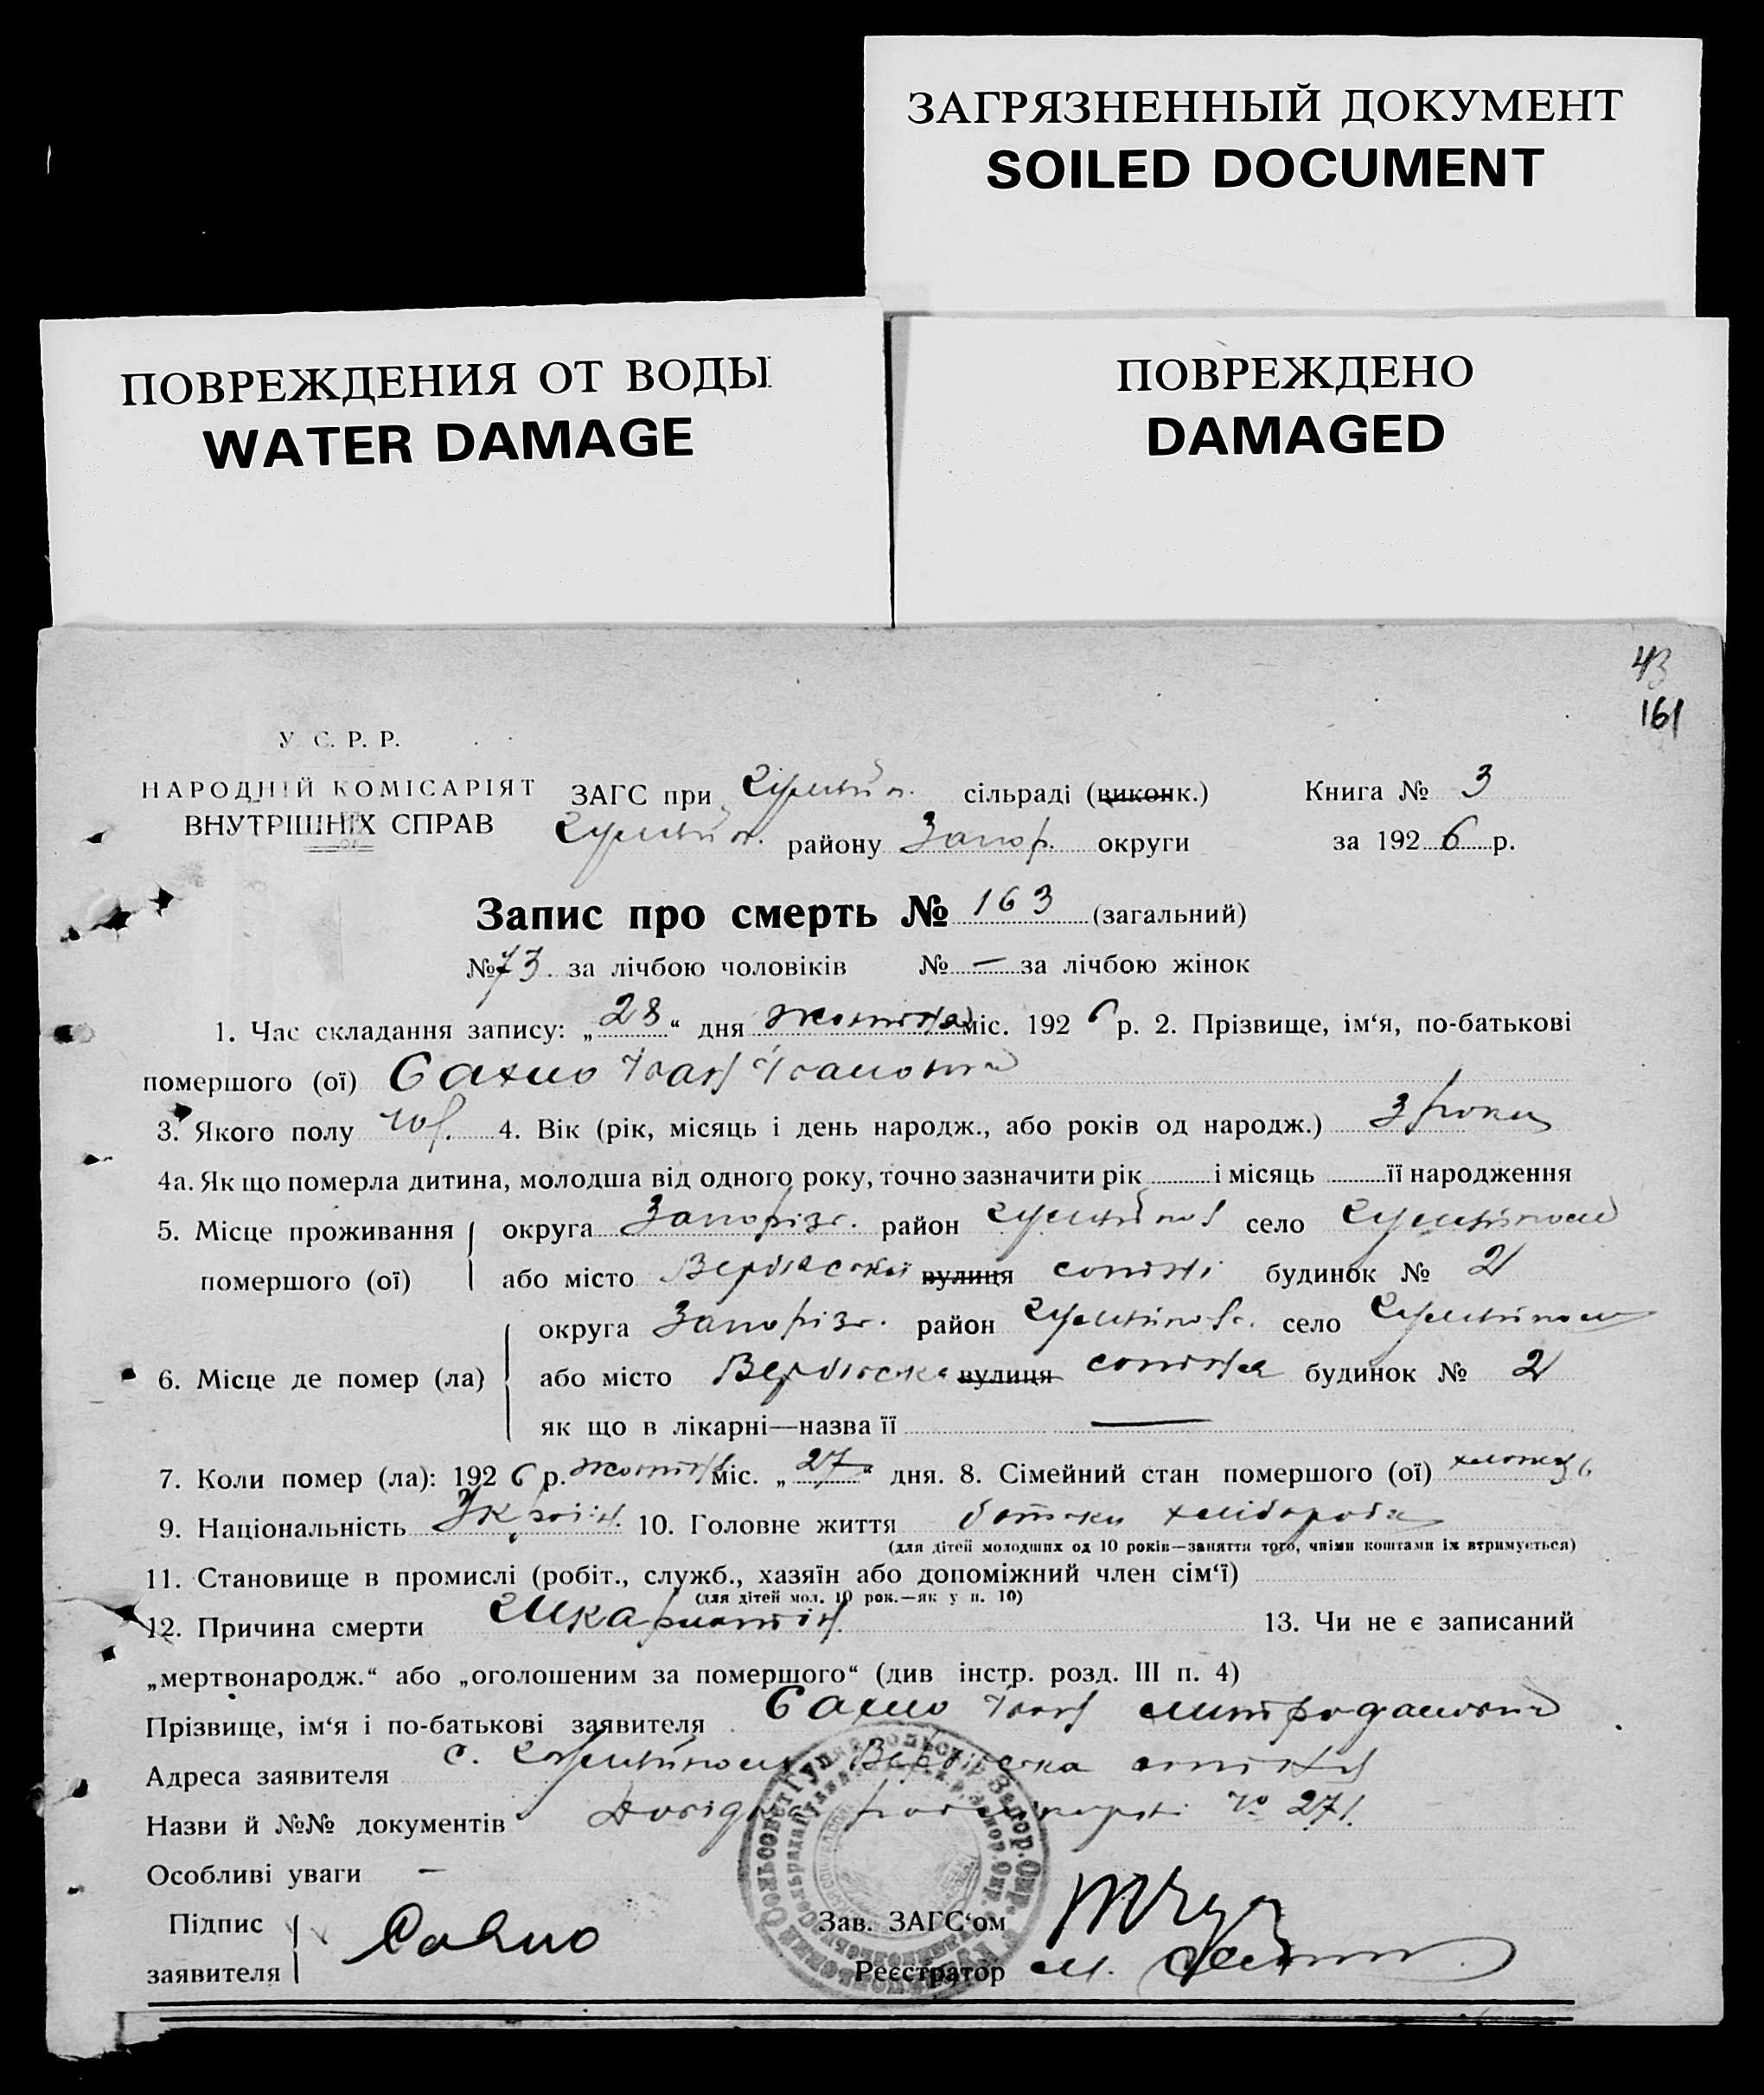 ЗАГРЯЗНЕННЫЙ ДОКУМЕНТ
SOILED DOCUMENT
ПОВРЕЖДЕНИЯ ОТ ВОДЫ
WATER DAMAGE
ПОВРЕЖДЕНО
DAMAGED
43
161
У. С. Р. Р.
НАРОДНІЙ КОМІСАРІЯТ
ВНУТРІШНІХ СПРАВ
ЗАГС при сільраді (виконк.) Книга № 3
району Запор. округи за 1926 р.
Запис про смерть № 163 (загальний)
№ 73 за лічбою чоловіків № — за лічбою жінок
1. Час складання запису: „28“ дня жовтня міс. 1926 р. 2. Прізвище, ім‘я, по-батькові
помершого (ої) Сахно Іван Іванович
3. Якого полу чол. 4. Вік (рік, місяць і день народж., або років од народж.) 3 роки
4а. Як що померла дитина, молодша від одного року, точно зазначити рік і місяць її народження
5. Місце проживання помершого (ої) округа Запорізь. район село
або місто вулиця сотні будинок № 2
6. Місце де помер (ла) округа Запорізь. район село
або місто вулиця сотня будинок № 2
як що в лікарні—назва її —
7. Коли помер (ла): 1926 р. жовтня міс. „27“ дня. 8. Сімейний стан помершого (ої) хлопець
9. Національність Україн. 10. Головне життя батьки хлібороби
(для дітей молодших од 10 років—заняття того, чиїми коштами їх втримується)
11. Становище в промислі (робіт., служб., хазяїн або допоміжний член сім‘ї)
(для дітей мол. 10 рок.—як у п. 10)
12. Причина смерти Шкарлатін 13. Чи не є записаний
„мертвонародж.“ або „оголошеним за помершого“ (див інстр. розд. III п. 4)
Прізвище, ім‘я і по-батькові заявителя Сахно Іван Митрофанович
Адреса заявителя с. сотня
Назви й №№ документів Довідка № 271
Особливі уваги —
Підпис заявителя Сахно
Зав. ЗАГС‘ом
Реєстратор